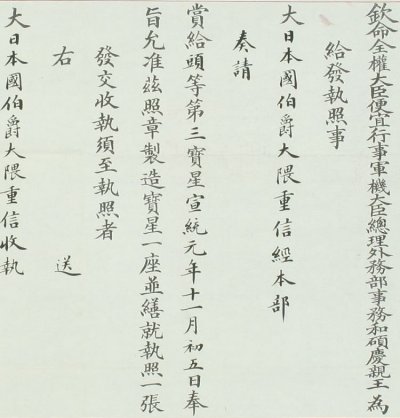 欽命全權大臣便宜行事軍機大臣總理外務部事務和碩慶親王為
給發執照事
大日本國伯爵大隈重信經本部
奏請
賞給頭等第三寶星宣統元年十一月初五日奉
旨允准茲照章製造寶星一座並繕就執照一張
發交收執須至執照者
右 送
大日本國伯爵大隈重信收執